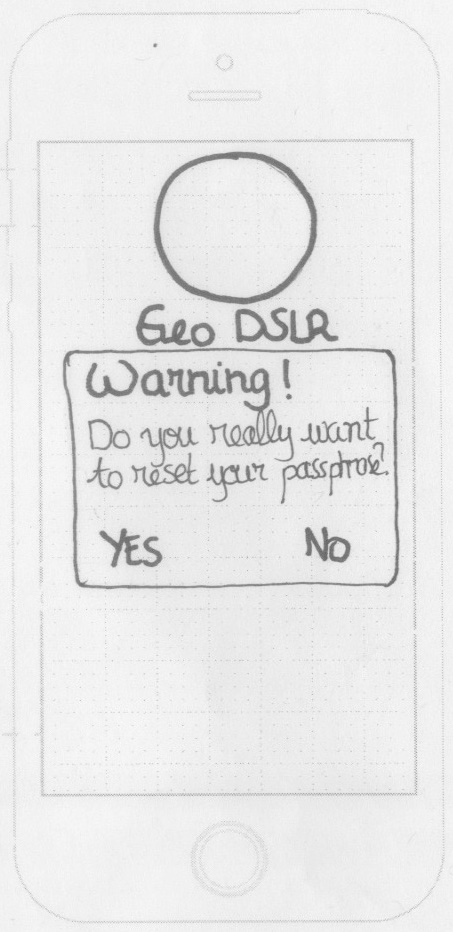 Geo DSLR
Warning!
Do you really want
to reset your passphrase?
YES
NO